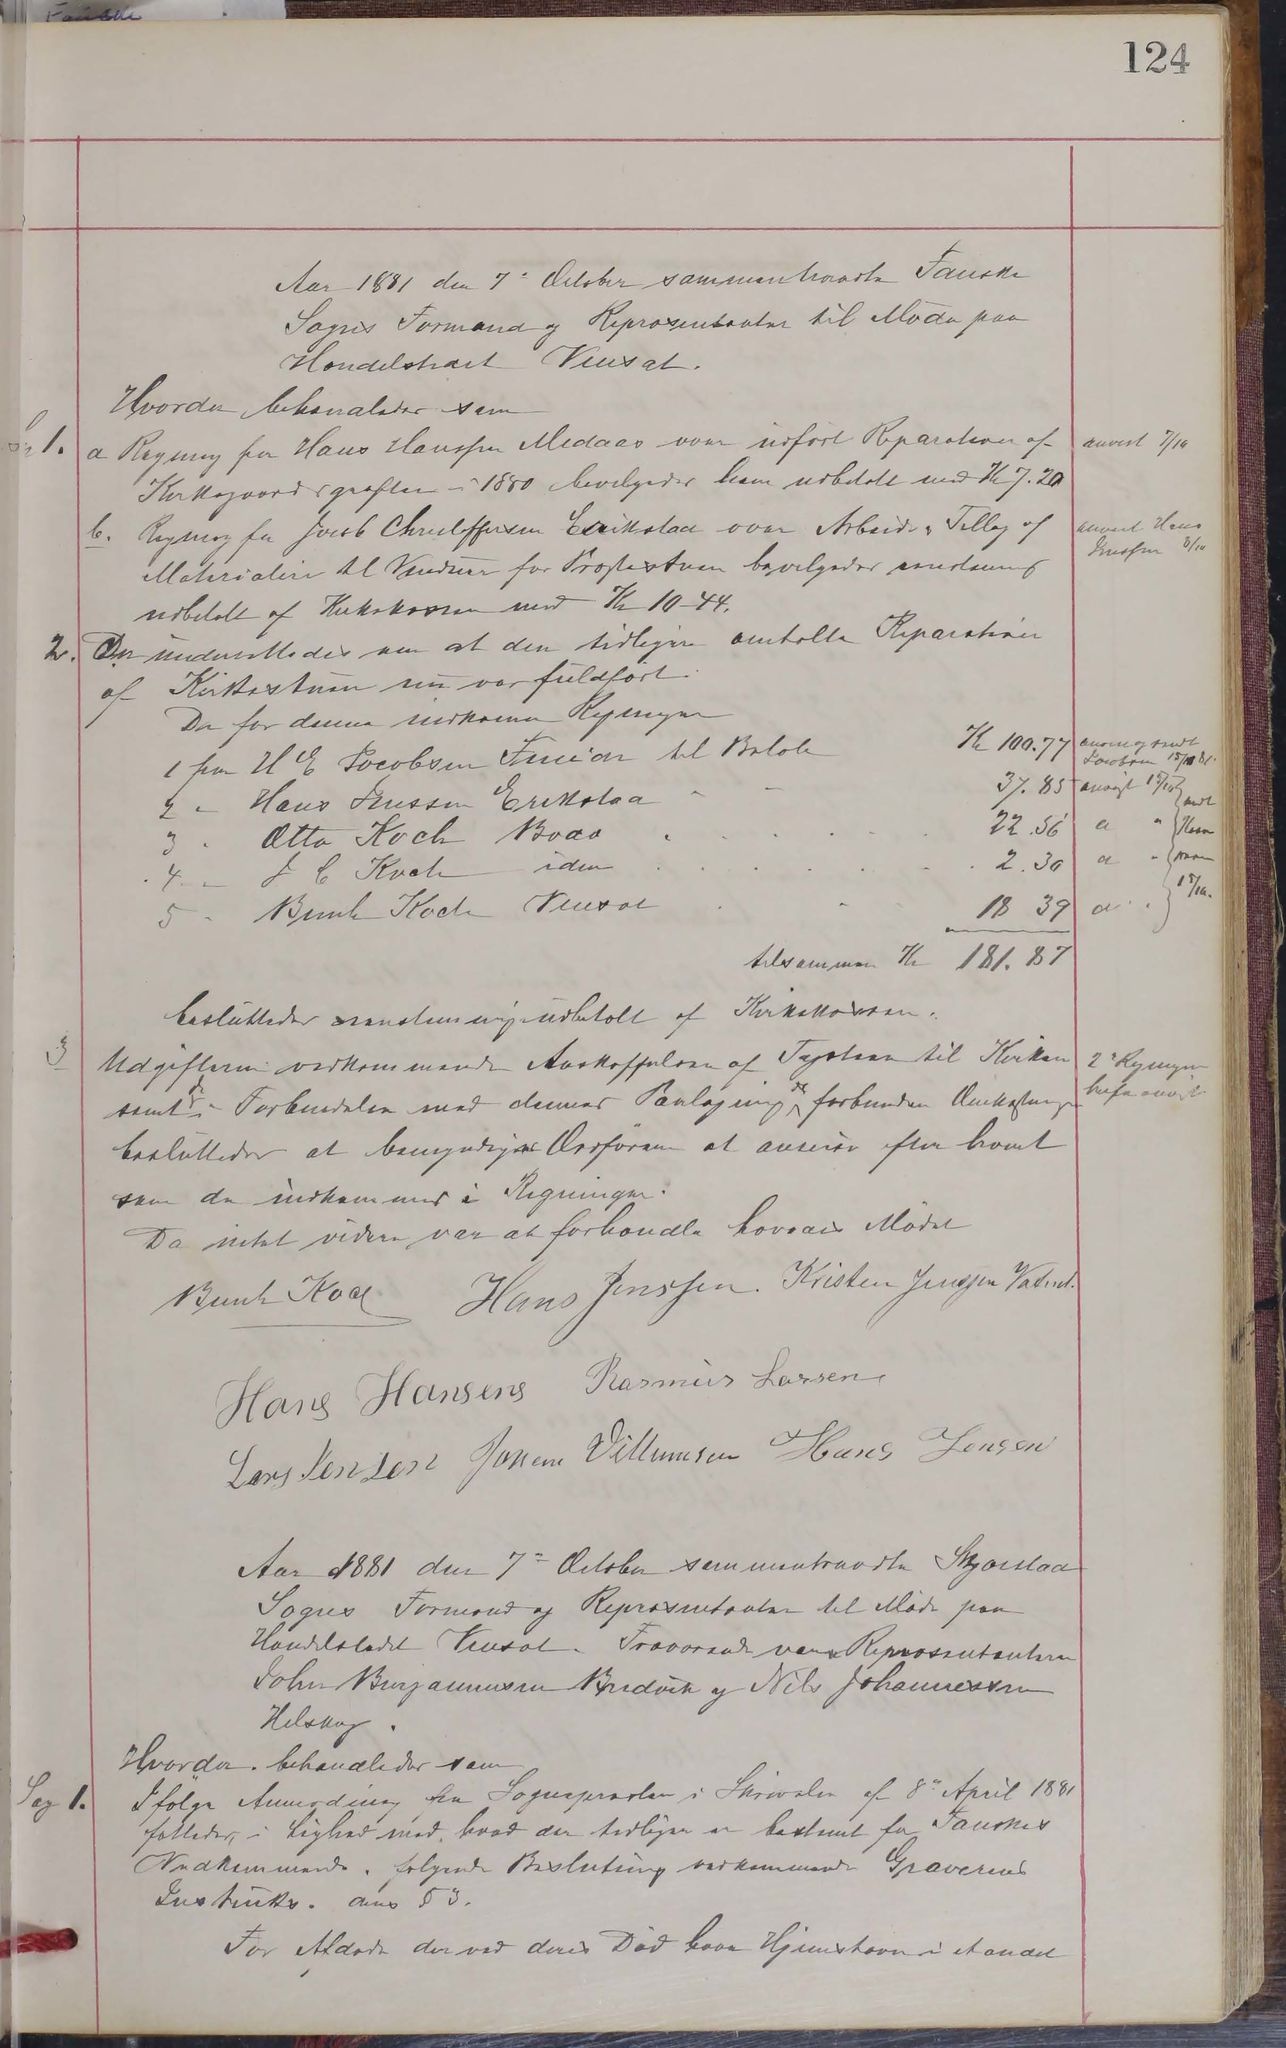 124
Aar 1881 den 7de October sammentraadte Fauske
Sogns Formænd og Repræsentanter til Möde paa
Handelsstedet Venset.
Hvorda behandledes som
1. a Regning fra Hans Hanssen Medaas over udfört Reparation af
Kirkegaardsgröften i 1880 bevilgedes ham udbetalt med Kr 7.20
anvist 7/10
b. Regning fra Jacob Christoffersen Erikstad over Arbeide & Tillæg af
Materialier til Vinduer for Præstestuen bevilgedes enstemmig
udbetalt af Kirkekassen med Kr 10-44.
anvist Hans
Jenssen 8/10
2. Der underrettedes om at den tidligere omtalte Reparation
af Kirkestuen nu var fuldfört.
Da for denne indkomne Regninger
1 fra H E Jacobsen Funion til Belöb Kr 100.77
2 " Hans Jenssen Erikstad " - 37.85
3 " Otto Koch Bodö 22.56
4 " J C Koch idem 2.30
5 " Bernh Koch Venset 18 39
tilsammen Kr 181.87
besluttedes enstemmig udbetalt af Kirkekassen.
3 Udgifterne vedkommende Anskaffelsen af Tagsten til Kirken
samt de i Forbindelse med dennes Paalægning forbunden Omkostninger
besluttedes at bemyndige Ordföreren at anvise efter hvert
som de indkommer i Regninger.
2de Regninger
Da intet videre var at forhandle hævedes Mödet
Bernh Koch Hans Jenssen. Kristen Jenssen Vatnet.
Hans Hansens Rasmus Larsen
Lars Jensen Johan Villumsen Hans Jensen
Aar 1881 den 7de October sammentraadte Skjerstad
Sogns Formænd og Repræsentanter til Möde paa
Handelstedet Venset. Fraværende var Repræsentanterne
John Benjaminsen Bredvik og Nils Johannessen
Helskog.
Hvorda behandledes som
Sag 1. Ifölge Anmodning fra Sognepræsten i Skrivelse af 8de April 1881
fattedes, i Lighed med, hvad der tidligere er bestemt for Fauskes
Vedkommende, fölgende Beslutning vedkommende Graverens
Instruks. dens § 3.
For Afdöde der ved deres Död have Hjemstavn i et andet